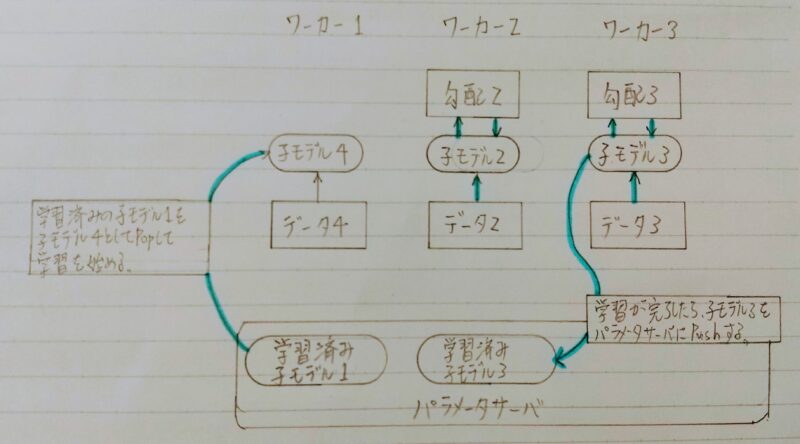 ワーカー1
ワーカー2
ワーカー3
勾配2
勾配3
子モデル4
子モデル2
子モデル3
データ4
データ2
データ3
学習済みの子モデル1を
子モデル4としてPopして
学習を始める。
学習が完了したら、子モデル3を
パラメータサーバにPushする。
学習済み
子モデル1
学習済み
子モデル3
パラメータサーバ